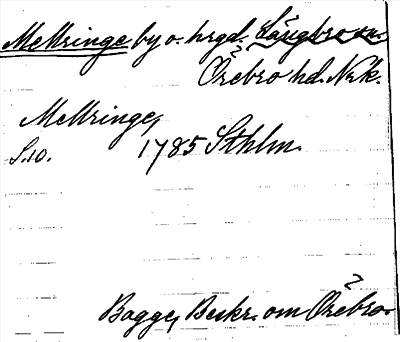 Mellringe by o. hrgd. Längbro sn.
Örebro hd. Nrk.
Mellringe,
S. 10. 1785 Sthlm.
Bagge, Beskr. om Örebro.